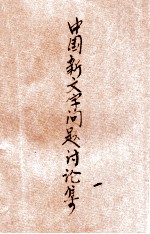 中国新文学问题讨论集
一